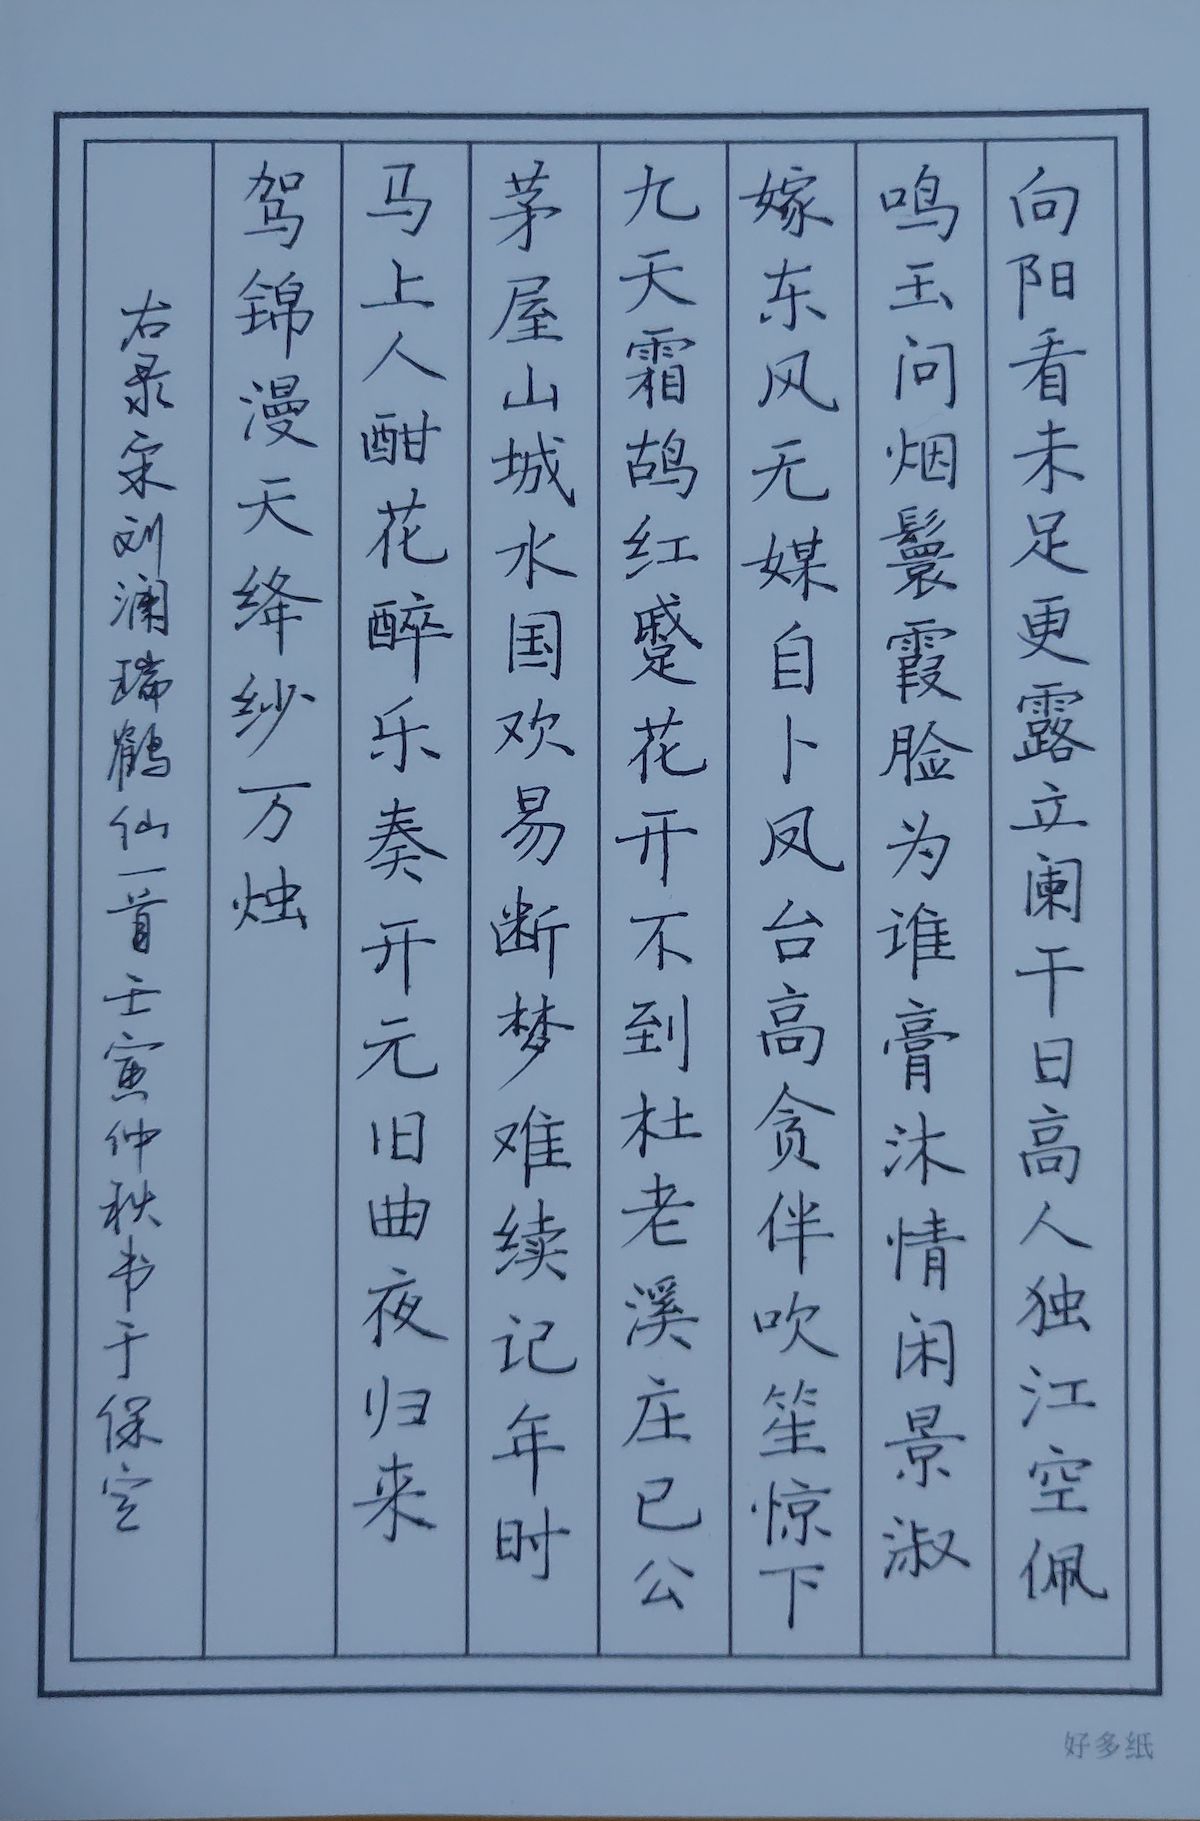 向阳看未足更露立阑干日高人独江空佩
鸣玉问烟鬟霞脸为谁膏沐情闲景淑
嫁东风无媒自卜凤台高贪伴吹笙惊下
九天霜鹄红蹙花开不到杜老溪庄已公
茅屋山城水国欢易断梦难续记年时
马上人酣花醉乐奏开元旧曲夜归来
驾锦漫天绛纱万烛
右录宋刘澜瑞鹤仙一首壬寅仲秋书于保定
好多纸